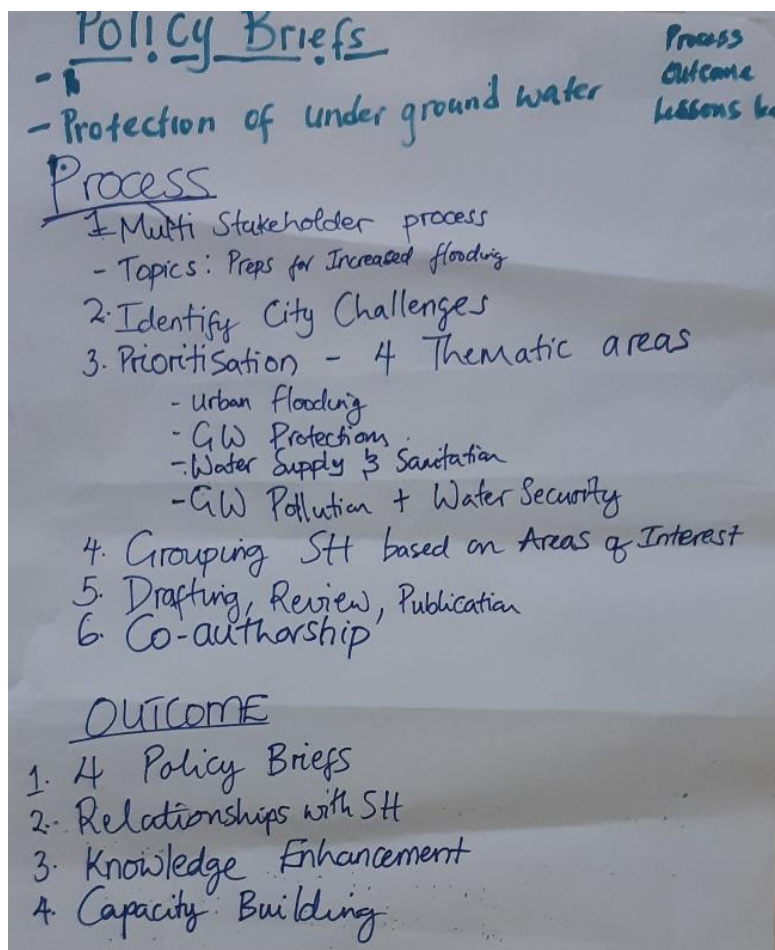 Policy Briefs
Process
Outcome
Lessons
- Protection of under ground water
Process
1. Multi Stakeholder process
- Topics: Preps for Increased flooding
2. Identify City Challenges
3. Prioritisation - 4 Thematic areas
- Urban flooding
- GW Protection
- Water Supply & Sanitation
- GW Pollution + Water Security
4. Grouping SH based on Areas of Interest
5. Drafting, Review, Publication
6. Co-authorship
OUTCOME
1. 4 Policy Briefs
2. Relationships with SH
3. Knowledge Enhancement
4. Capacity Building